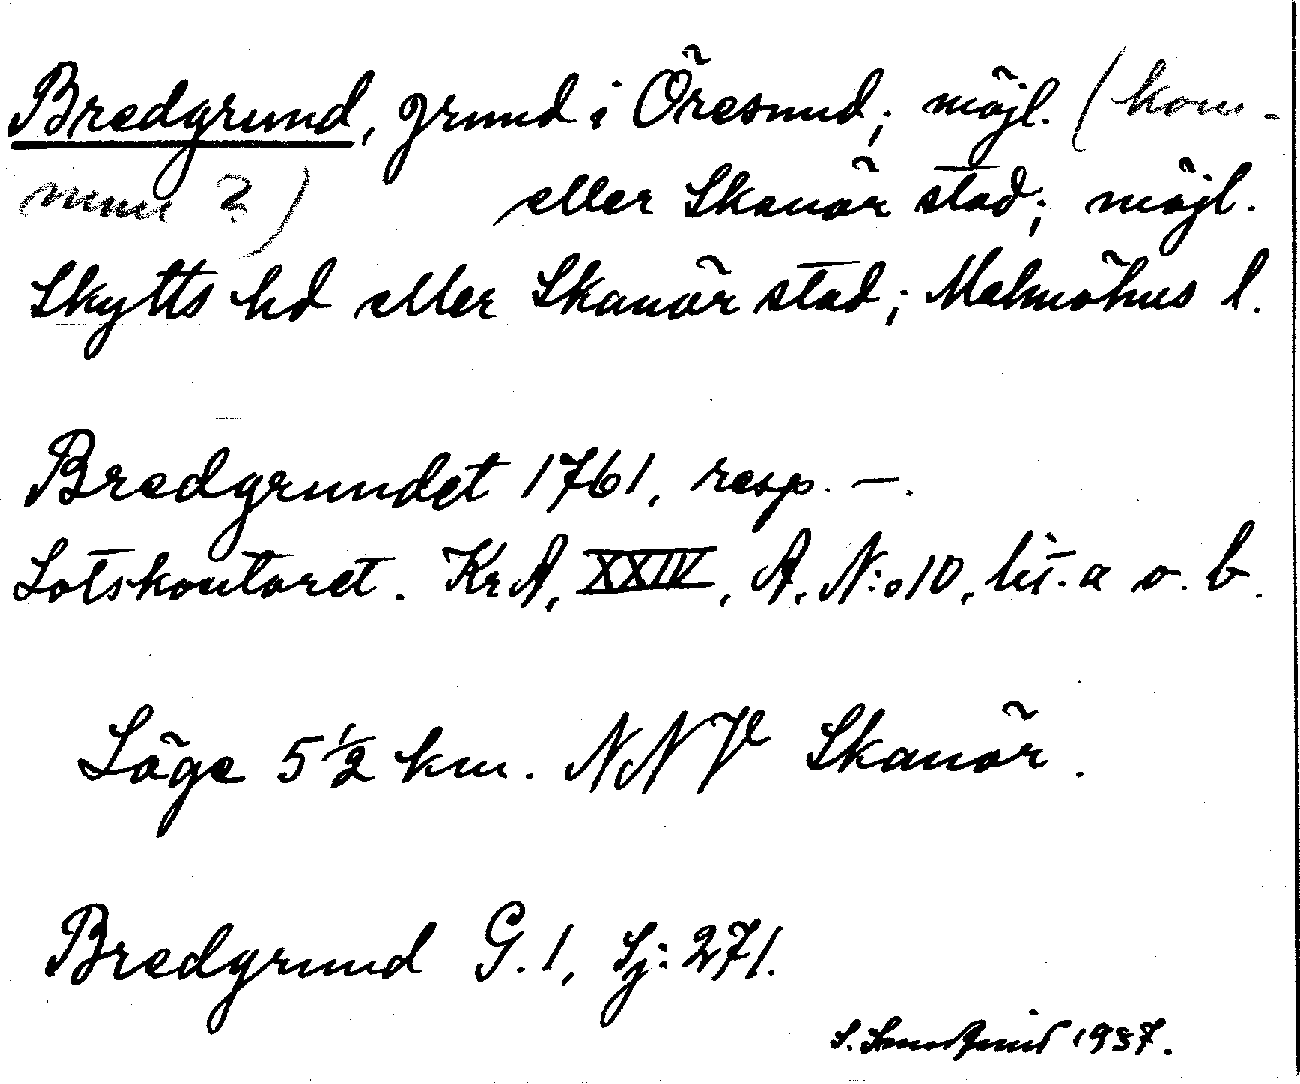 Bredgrund, grund i Öresund; möjl. (kom-
mun ?) eller Skanör stad; möjl.
Skytts hd eller Skanör stad; Malmöhus l.
Bredgrundet 1761, resp. —.
Lotskontoret. KrA, XXIV, A. N:o 10, lit. a o. b.
Läge 5 1/2 km. NNV Skanör.
Bredgrund G. 1, Sj: 271.
S. 1937.